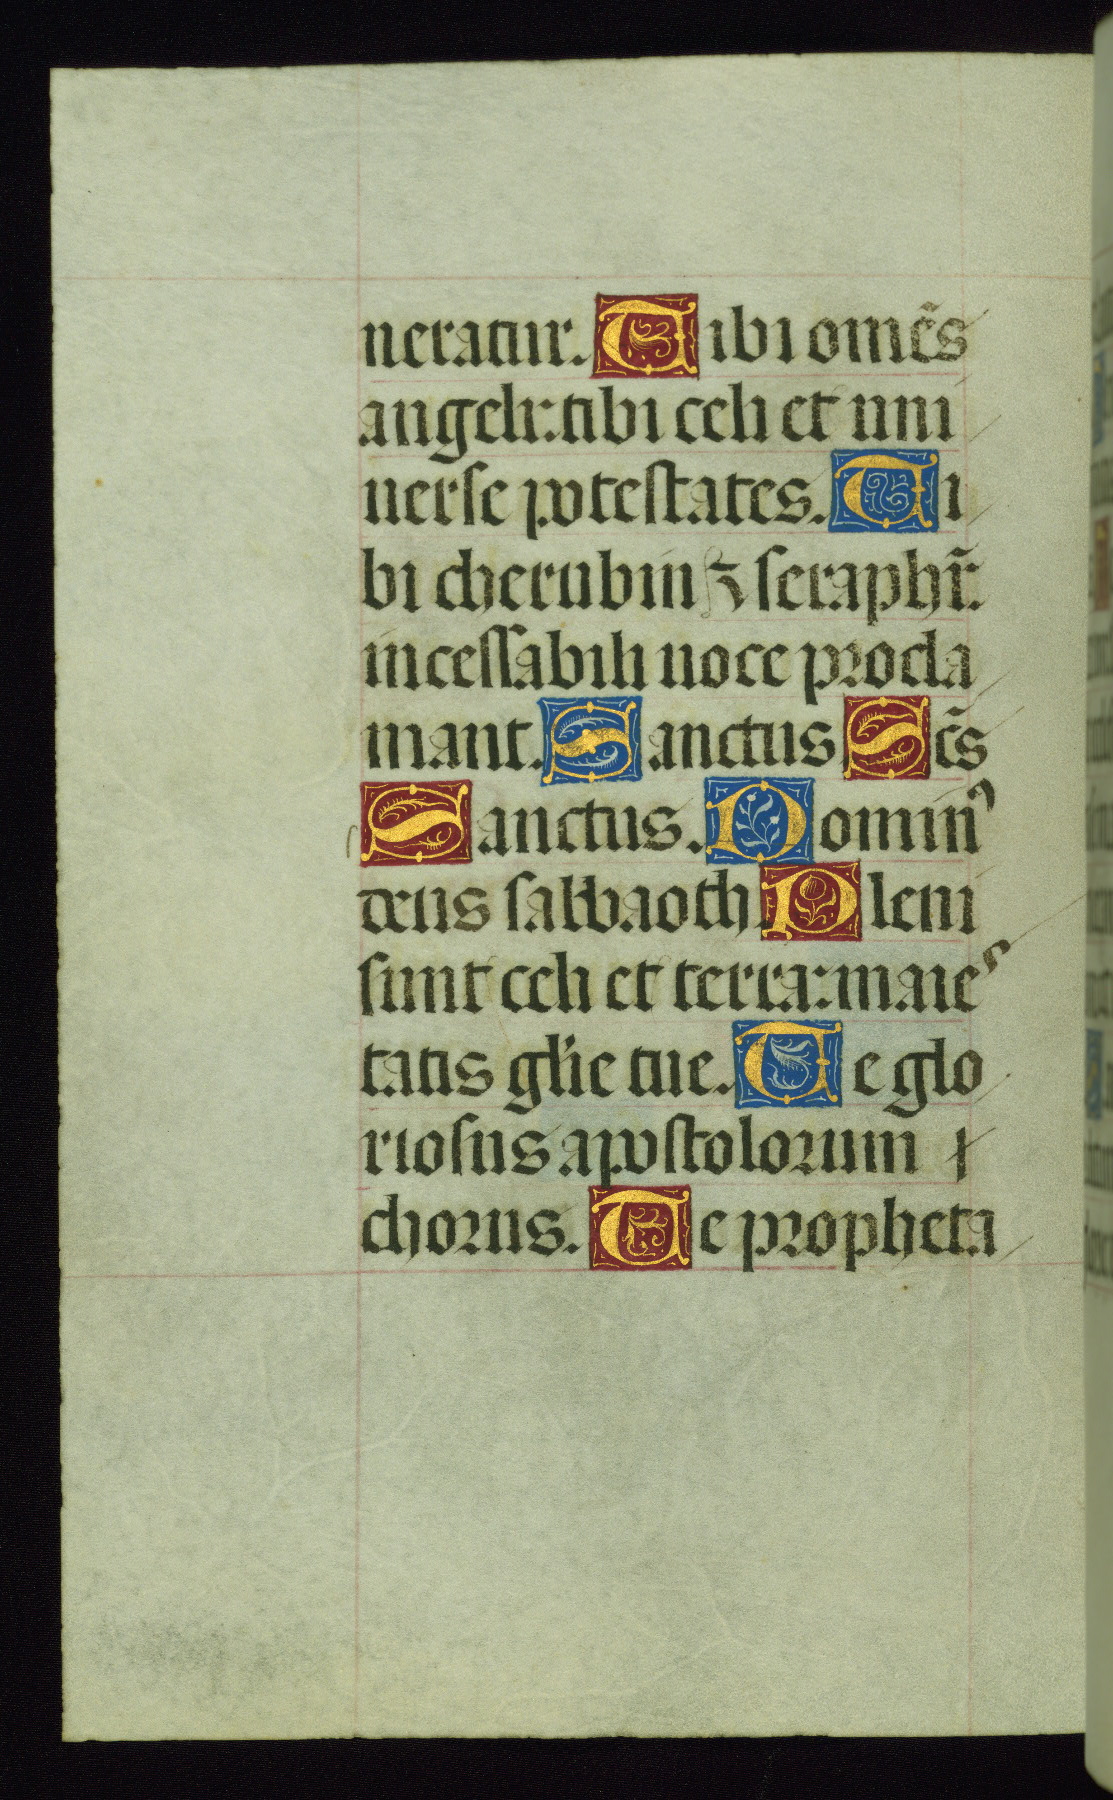 neratur. Tibi om̃es
angeli: tibi celi et uni
uerse potestates. Ti
bi cherubin ⁊ seraphĩ.
incessabili uoce procla
mant. Sanctus Sc̃s
Sanctus. Dominꝰ
deus sabbaoth Pleni
sunt celi et terra: maies
tatis gl'ie tue. Te glo
riosus apostolorum
chorus. Te propheta